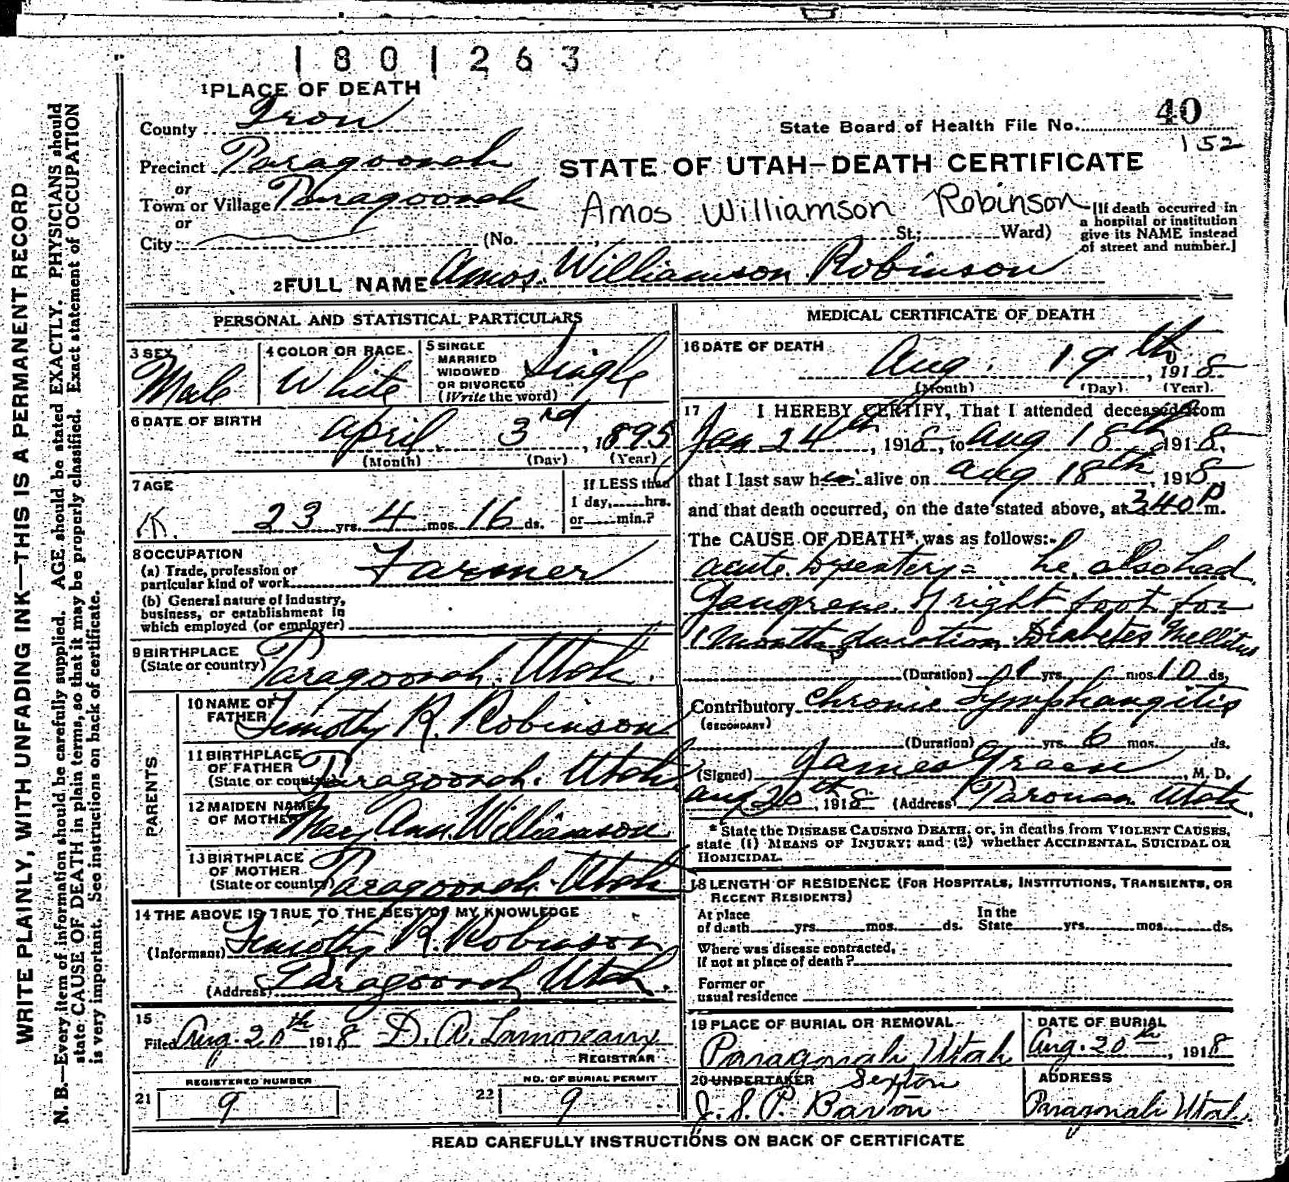 1801263
1 PLACE OF DEATH
County Iron
40
State Board of Health File No.
152
Precinct Paragoonah
STATE OF UTAH—DEATH CERTIFICATE
or
Town or Village Paragoonah
or
Amos Williamson Robinson
[If death occurred in
a hospital or institution
give its NAME instead
of street and number.]
City
(No. St.; Ward)
2 FULL NAME Amos. Williamson Robinson
PERSONAL AND STATISTICAL PARTICULARS
3 SEX
Male
4 COLOR OR RACE
White
5 SINGLE
MARRIED
WIDOWED
OR DIVORCED
(Write the word)
Single
6 DATE OF BIRTH
April. 3rd, 1895
(Month) (Day) (Year)
7 AGE
23 yrs. 4 mos. 16 ds.
If LESS than
1 day, hrs.
or min.?
8 OCCUPATION
(a) Trade, profession or
particular kind of work Farmer
(b) General nature of Industry,
business, or establishment in
which employed (or employer)
9 BIRTHPLACE
(State or country) Paragoonah. Utah.
PARENTS
10 NAME OF
FATHER Timothy R. Robinson
11 BIRTHPLACE
OF FATHER
(State or country) Paragoonah. Utah
12 MAIDEN NAME
OF MOTHER Mary Ann. Williamson
13 BIRTHPLACE
OF MOTHER
(State or country) Paragoonah. Utah
14 THE ABOVE IS TRUE TO THE BEST OF MY KNOWLEDGE
(Informant) Timothy R. Robinson
(Address) Paragoonah Utah.
15
Filed Aug. 20th 1918 D. A. Lamoreaux
REGISTRAR
REGISTERED NUMBER
21 9
NO. OF BURIAL PERMIT
22 9
MEDICAL CERTIFICATE OF DEATH
16 DATE OF DEATH
Aug. 19th, 1918
(Month) (Day) (Year)
17 I HEREBY CERTIFY, That I attended deceased from
Jan 24th, 1918, to Aug 18th 1918,
that I last saw him alive on Aug 18th, 1918,
and that death occurred, on the date stated above, at 340 P m.
The CAUSE OF DEATH* was as follows:-
acute Dysentery = he also had
Gangrene of right foot for
1 Month duration, Diabetes Mellitus
(Duration) yrs. mos. 10 ds.
Contributory Chronic Lymphangitis
(SECONDARY)
(Duration) yrs. 6 mos. ds.
(Signed) James Green, M. D.
Aug 20th, 1918 (Address) Parowan Utah
* State the DISEASE CAUSING DEATH, or, in deaths from VIOLENT CAUSES,
state (1) MEANS OF INJURY; and (2) whether ACCIDENTAL, SUICIDAL OR
HOMICIDAL.
18 LENGTH OF RESIDENCE (FOR HOSPITALS, INSTITUTIONS, TRANSIENTS, OR
RECENT RESIDENTS)
At place
of death yrs. mos. ds.
In the
State yrs. mos. ds.
Where was disease contracted,
If not at place of death?
Former or
usual residence
19 PLACE OF BURIAL OR REMOVAL
Paragonah Utah
DATE OF BURIAL
Aug. 20th, 1918
20 UNDERTAKER Sexton
J. S. P. Barton
ADDRESS
Paragonah Utah.
READ CAREFULLY INSTRUCTIONS ON BACK OF CERTIFICATE
WRITE PLAINLY, WITH UNFADING INK—THIS IS A PERMANENT RECORD
N. B.—Every item of information should be carefully supplied. AGE should be stated EXACTLY. PHYSICIANS should
state CAUSE OF DEATH in plain terms, so that it may be properly classified. Exact statement of OCCUPATION
is very important. See instructions on back of certificate.